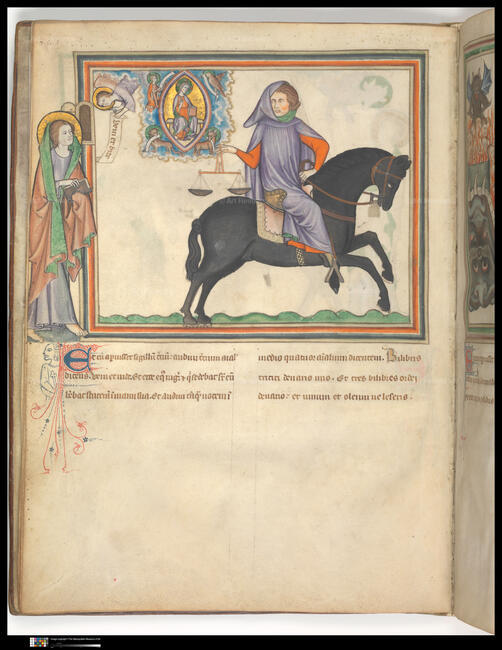 Veni et vide
Et cū apuisset sigillū tciū: audiui tcium aīal
dicens. veni et uide. Et ecce eqꝰ nigꝰ: sedebat eū
habebat staterā ī manu sua. Et audiui uocem ī
medio quatuor aīalium dicentem. Bilibris
tritici denario uno. Et tres bilibres ordei
denario: et uinum et oleum ne leseris.